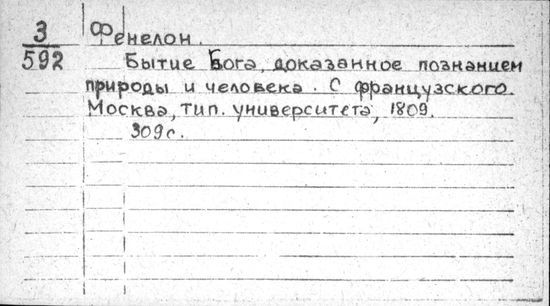 3
592
Фенелон.
Бытие Бога, доказанное познанием
природы и человека. С французского.
Москва, тип. университета, 1809.
309 с.